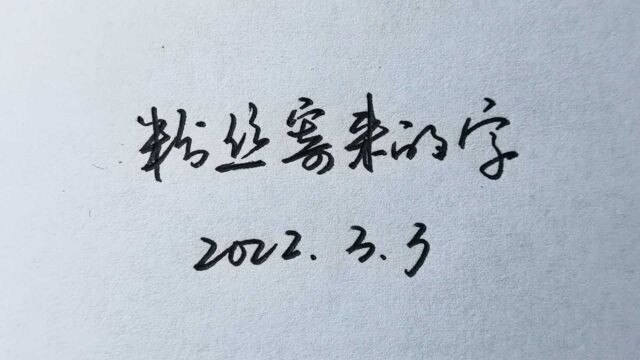 粉丝寄来的字
2022.3.3